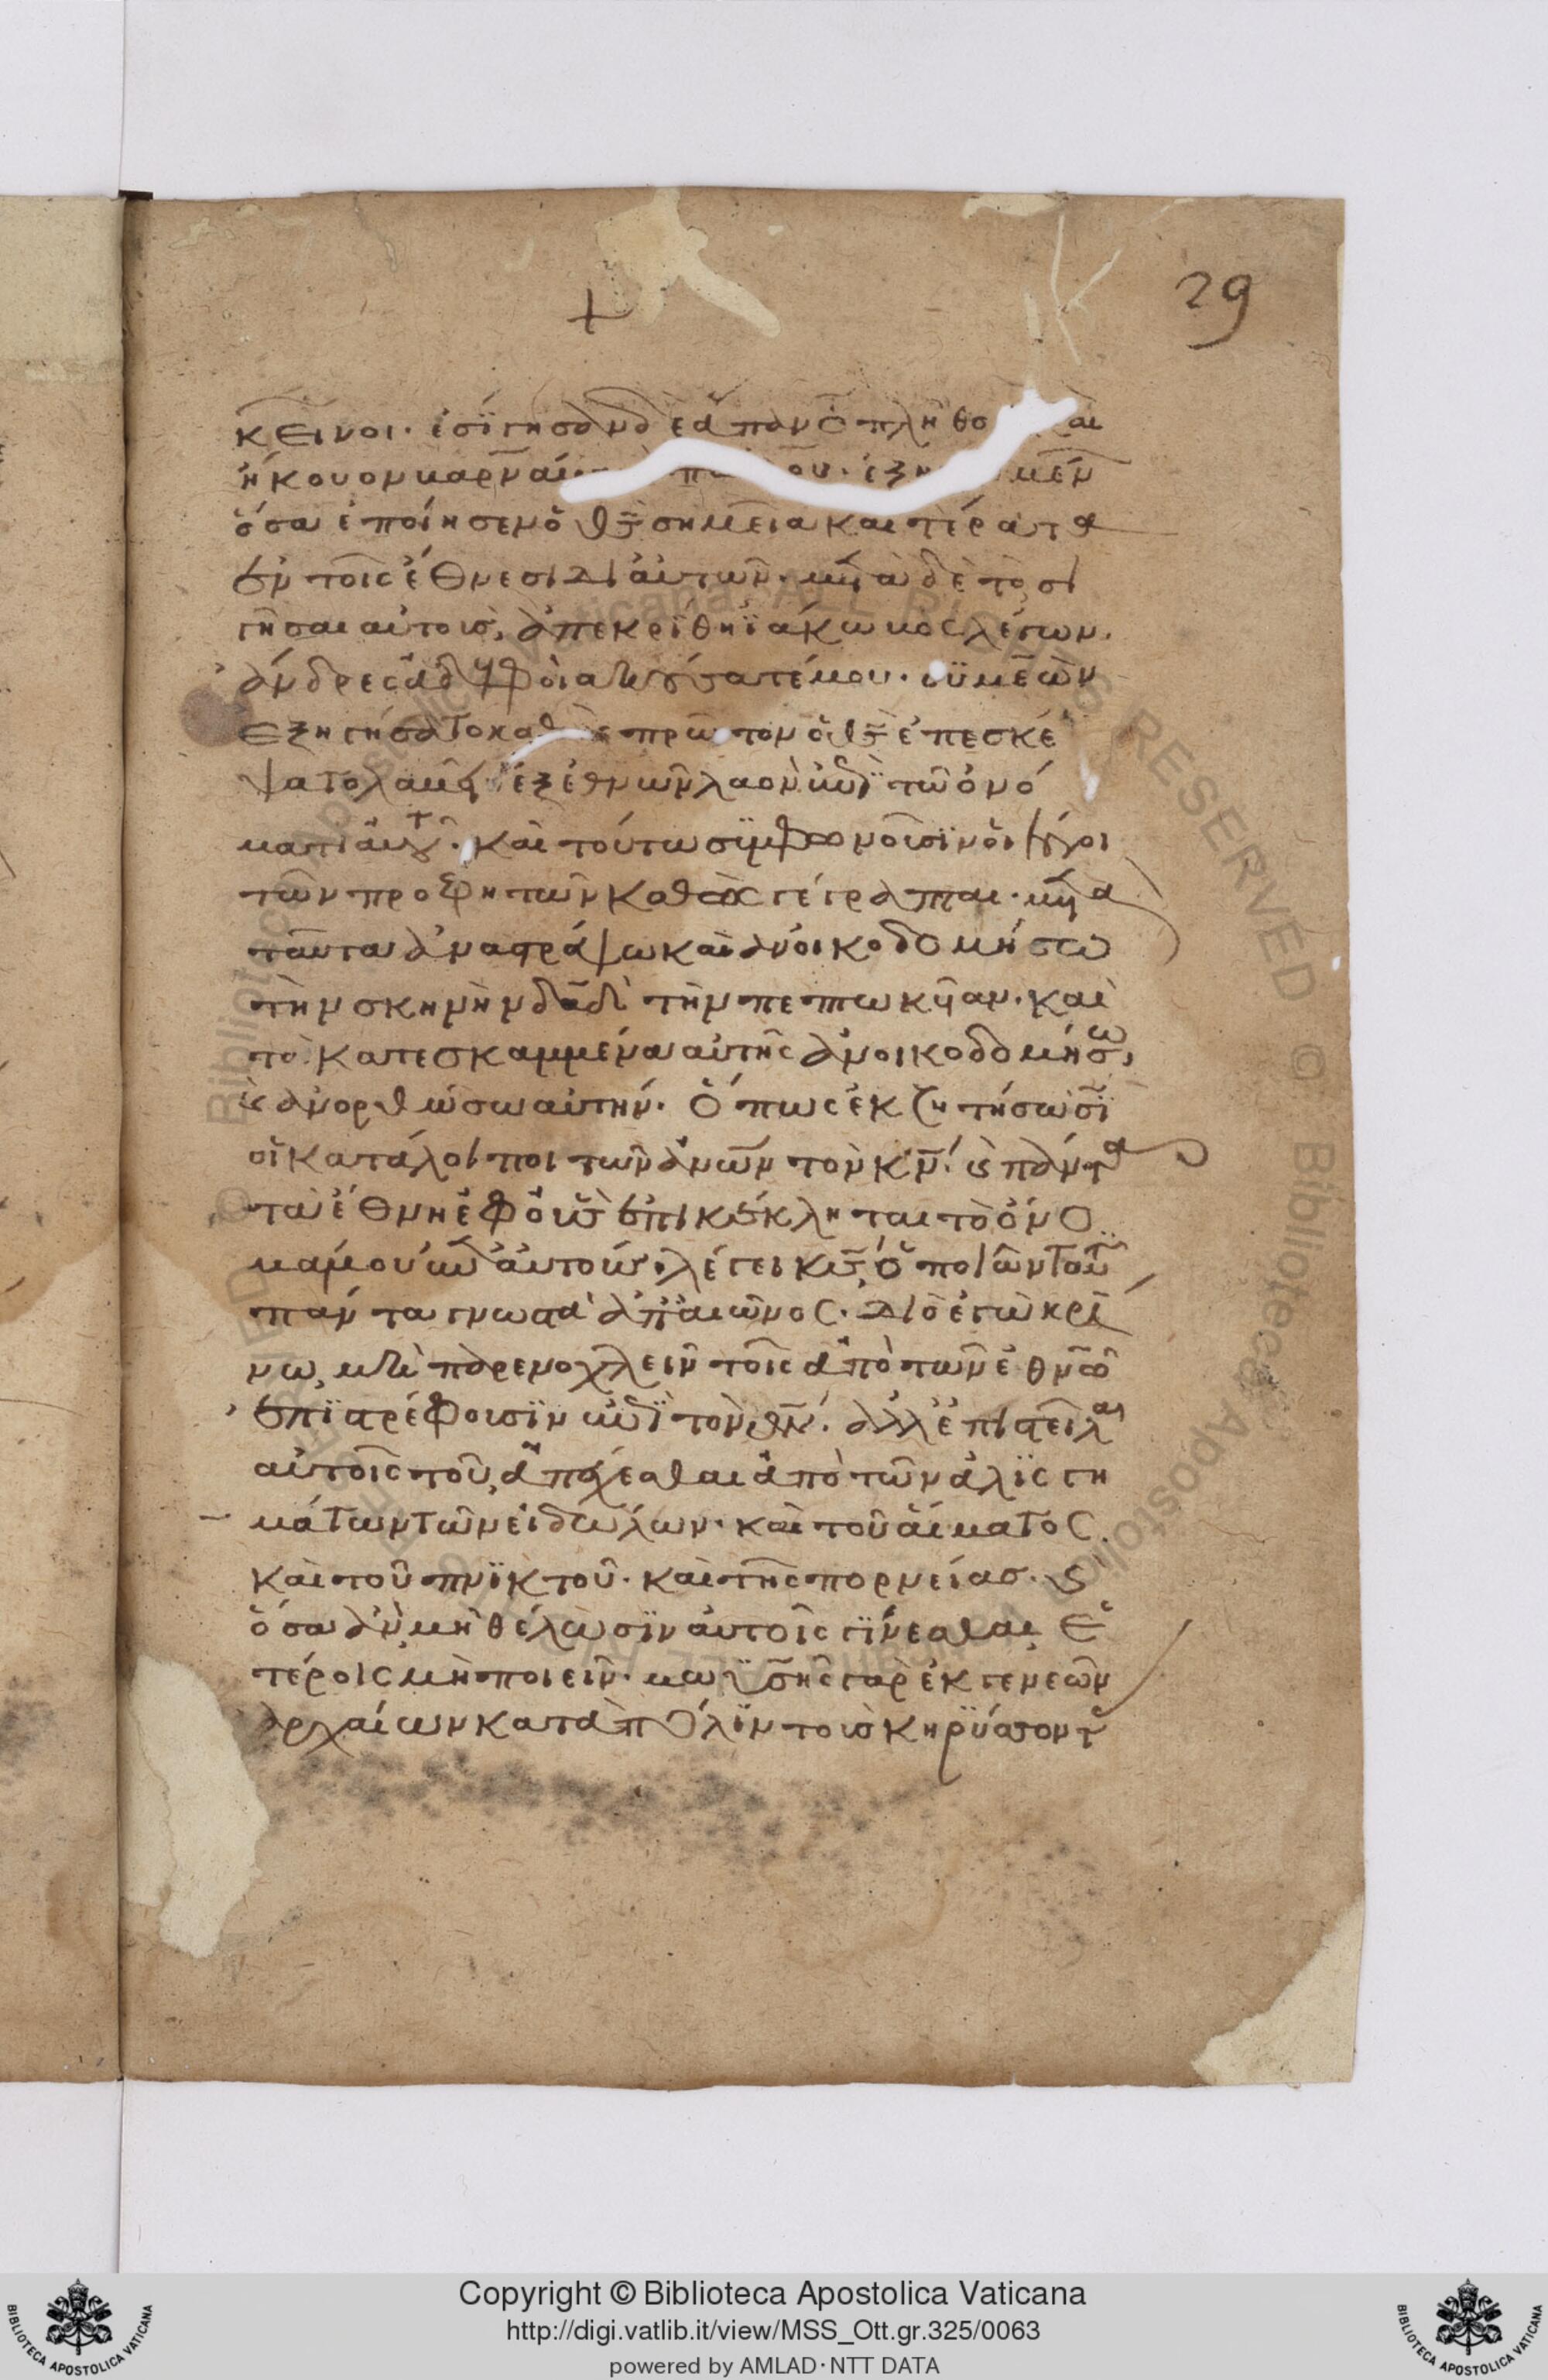 29
κεῖνοι· ἐσΐγησαν δὲ ἅπαν τὸ πλῆθο καὶ
ἤκουον βαρνά ἐξη μέν
ὅσα ἐποίησεν ὁ θς σημεῖα και τέρατα
ἐν τοῖς ἔθνεσι δι αὐτῶν· μετὰ δὲ το σι
γῆσαι αὐτοὺσ, ἀπεκρΐθη ϊάκωβος λέγων·
ἄνδρες ἀδελφοὶ ἀκούσατέ μου· συμεὼν
ἐξηγήσατο καθὼς πρῶτον ὁ θς ἐπεσκέ
ψατο λαβεῖν ἐξ ἐθνῶν λαὸν ἐπῒ τῶ ὀνό
ματι αὐτοῦ· καὶ τούτω συμφωνοῦσϊν οἱ λόγοι
τῶν προφητῶν καθὼς γέγραπται· μετὰ
ταῦτα ἀναστρέψω καὶ ἀνοικοδομήσω
τὴν σκηνὴν δαδ τὴν πεπτωκυῖαν· καὶ
τὰ κατεσκαμμένα αὐτῆς ἀνοικοδομήσω,
καὶ ἀνορθώσω αὐτήν· ὅπως ἐκζητήσωσϊ
οἱ κατάλοιποι τῶν ἀνων τὸν κν· καὶ πάντα
τὰ ἔθνη ἐφ οὓς ἐπικέκληται τὸ ὄνο
μά μου ἐπ αὐτούς· λέγει κς ὁ ποιῶν ταῦτα
πάντα γνωστὰ ἀπ αἰῶνος· διὸ ἐγὼ κρί
νω, μὴ παρενοχλεῖν τοῖς ἀπὸ τῶν ἐθνῶν
ἐπϊστρέφουσϊν ἐπῒ τὸν θν· ἀλλ ἐπιστεῖλαι
αὐτοῖς τοῦ ἀπέχεσθαι ἀπὸ τῶν ἀλϊσγη
μάτων τῶν εἰδώλων· καὶ τοῦ αἵματος·
καὶ τοῦ πνϊκτοῦ· καὶ τῆς πορνείασ· καὶ
ὅσα ἂν μὴ θέλωσϊν αὐτοῖς γΐνεσθαι ἑ
τέροις μὴ ποιεῖν· μωϋσῆς γὰρ ἐκ γενεῶν
ἀρχαίων κατὰ πόλϊν τοὺσ κηρύσσοντας
Copyright © Biblioteca Apostolica Vaticana
http://digi.vatlib.it/view/MSS_Ott.gr.325/0063
powered by AMLAD·NTT DATA